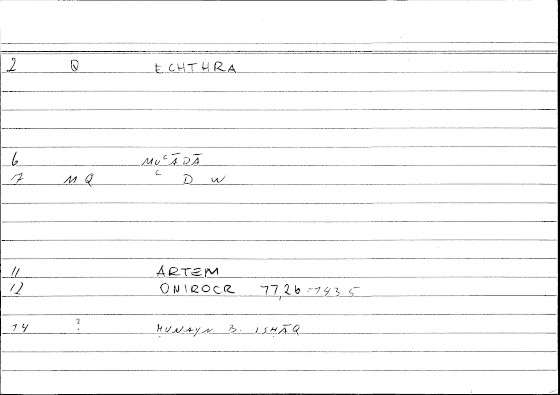 2 Q ECHTHRA
6 MUʿĀDĀ
7 MQ ʿ D W
11 ARTEM
12 ONIROCR 77,26 = 143 5
14 ? ḤUNAYN B. ISḤĀQ